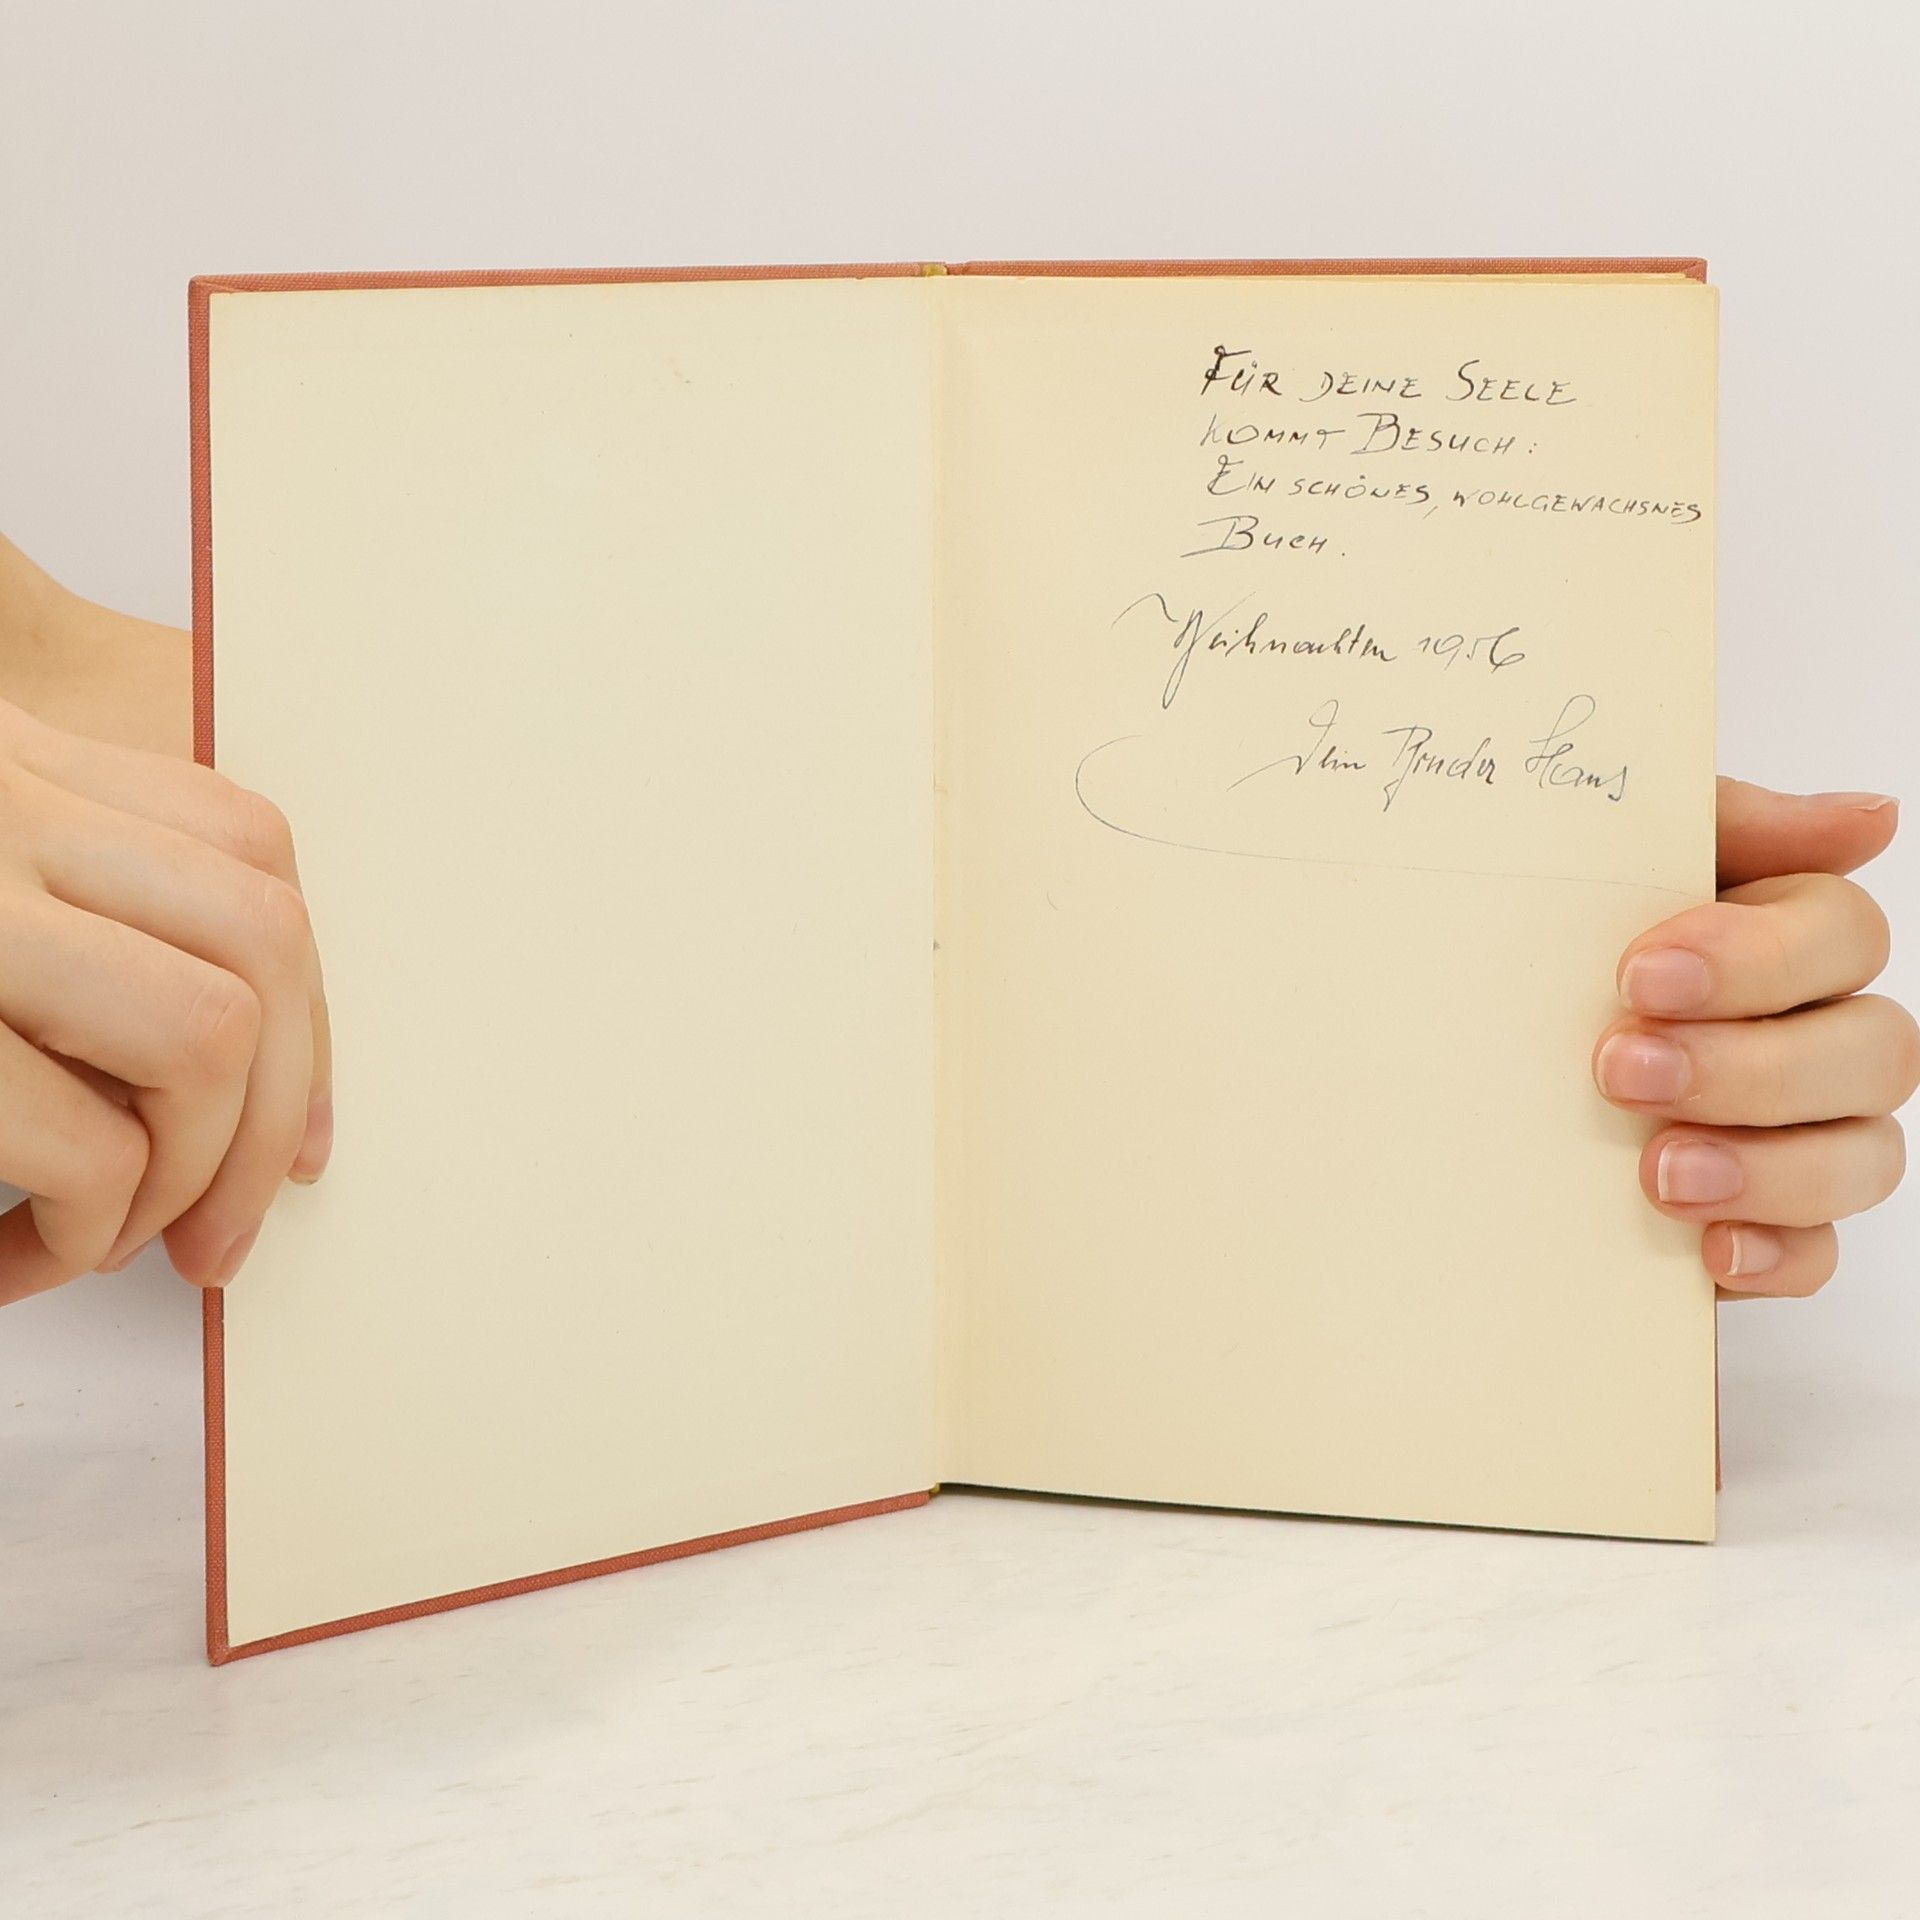 FÜR DEINE SEELE
KOMMT BESUCH:
EIN SCHÖNES, WOHLGEWACHSNES
BUCH.
Weihnachten 1956
Dein Bruder Hans